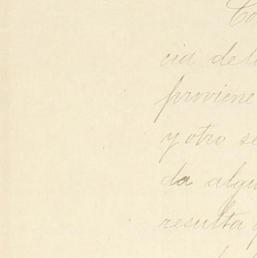 Co
cia del
proviene
y otro se
da algu
resulta